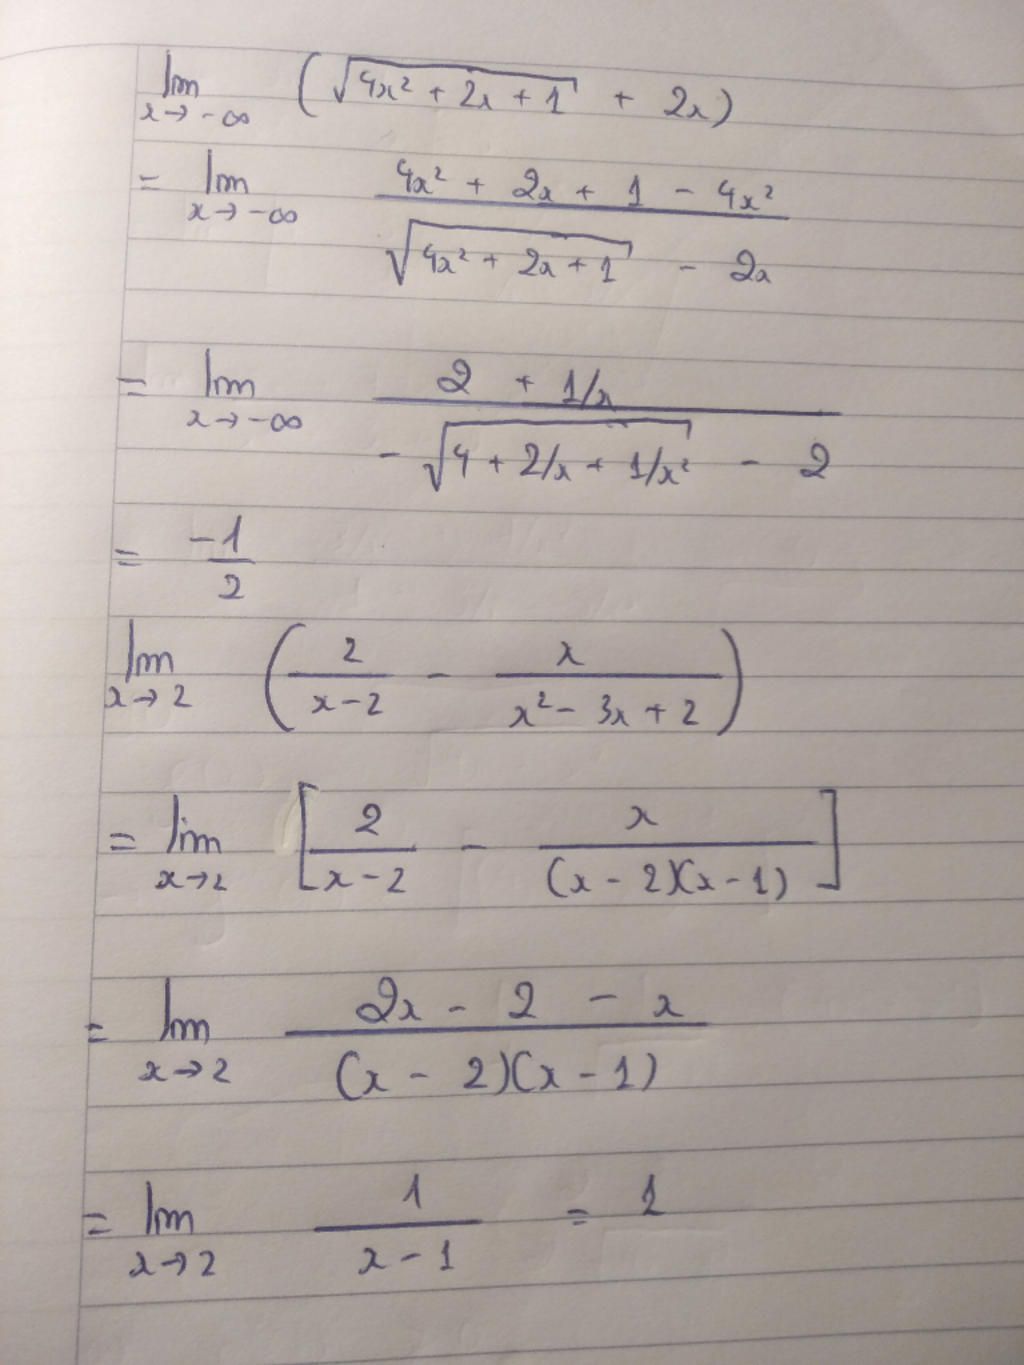 lim x→-∞ (√(4x² + 2x + 1) + 2x)
= lim x→-∞ (4x² + 2x + 1 - 4x²) / (√(4x² + 2x + 1) - 2x)
= lim x→-∞ (2 + 1/x) / (-√(4 + 2/x + 1/x²) - 2)
= -1/2
lim x→2 (2/(x-2) - x/(x² - 3x + 2))
= lim x→2 [2/(x-2) - x/((x-2)(x-1))]
= lim x→2 (2x - 2 - x) / ((x - 2)(x - 1))
= lim x→2 1/(x-1) = 1